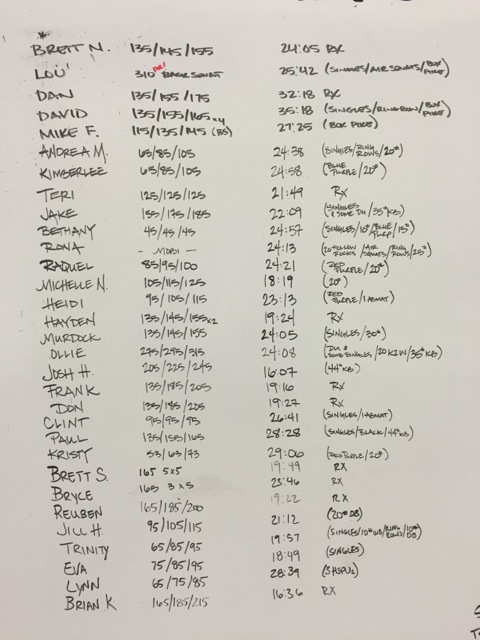 BRETT N. 135/145/155 24:05 RX
LOU 310 PR! BACK SQUAT 25:42 (SINGLES/AIR SQUATS/BOX PIKE)
DAN 135/155/175 32:18 RX
DAVID 135/155/165x4 35:18 (SINGLES/RING ROW/BOX PIKE)
MIKE F. 115/135/145 (BS) 27:25 (BOX PIKE)
ANDREA M. 65/85/105 24:38 (SINGLES/RING ROWS/20#)
KIMBERLEE 65/85/105 24:58 (BLUE PURPLE/20#)
TERI 125/125/125 21:49 RX
JAKE 155/175/185 22:09 (SINGLES & SOME DU/35# KB)
BETHANY 45/45/45 24:57 (SINGLES/10#/BLUE PURP/15#)
RONA - MOBI - 24:13 (20 HOLLOW ROCKS/AIR SQUATS/RING ROWS/25#)
RAQUEL 85/95/100 24:21 (RED PURPLE/20#)
MICHELLE N. 105/115/125 18:19 (20#)
HEIDI 95/105/115 23:13 (RED PURPLE/1 ABMAT)
HAYDEN 135/145/155x2 19:24 RX
MURDOCK 135/145/155 24:05 (SINGLES/30#)
OLLIE 275/295/315 24:08 (DU & SOME SINGLES/20 K2W/35# KB)
JOSH H. 205/225/245 16:07 (44# KB)
FRANK 135/185/205 19:16 RX
DON 135/185/205 19:27 RX
CLINT 95/95/95 26:41 (SINGLES/1 ABMAT)
PAUL 135/155/165 28:28 (SINGLES/BLACK/44# KB)
KRISTY 53/63/73 29:00 (RED PURPLE/20#)
BRETT S. 165 5x5 19:49 RX
BRYCE 165 3x5 23:46 RX
REUBEN 165/185/200 19:22 RX
JILL H. 95/105/115 21:12 (20# DB)
TRINITY 65/85/95 19:57 (SINGLES/10# WB/RING ROWS/10# DB)
EVA 75/85/95 18:49 (SINGLES)
LYNN 65/75/85 28:39 (SHSPUs)
BRIAN K 165/185/215 16:36 RX